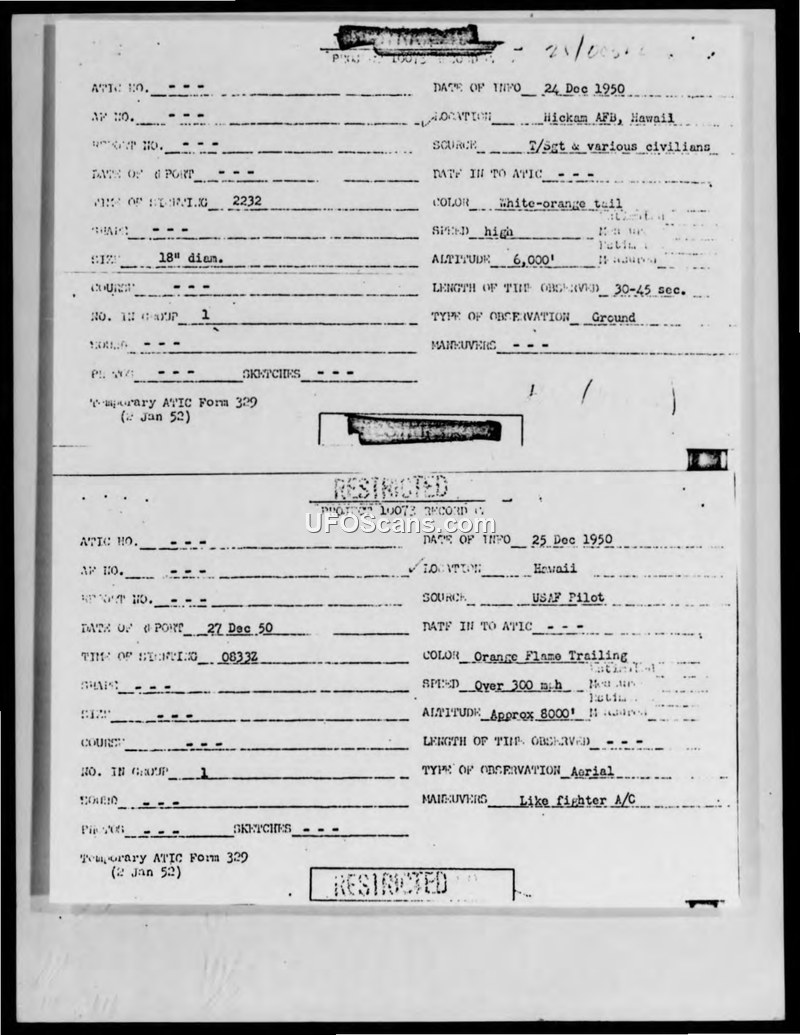 PROJECT 10073 RECORD
ATIC NO. - - - DATE OF INFO 24 Dec 1950
AF NO. - - - LOCATION Hickam AFB, Hawaii
REPORT NO. - - - SOURCE T/Sgt & various civilians
DATE OF REPORT - - - DATE IN TO ATIC - - -
TIME OF SIGHTING 2232 COLOR White-orange tail
SHAPE - - - SPEED high
SIZE 18" diam. ALTITUDE 6,000'
COURSE - - - LENGTH OF TIME OBSERVED 30-45 sec.
NO. IN GROUP 1 TYPE OF OBSERVATION Ground
SOUND - - - MANEUVERS - - -
PHOTOS - - - SKETCHES - - -
Temporary ATIC Form 329
(2 Jan 52)
RESTRICTED
PROJECT 10073 RECORD
UFOScans.com
ATIC NO. - - - DATE OF INFO 25 Dec 1950
AF NO. - - - LOCATION Hawaii
REPORT NO. - - - SOURCE USAF Pilot
DATE OF REPORT 27 Dec 50 DATE IN TO ATIC - - -
TIME OF SIGHTING 0833Z COLOR Orange Flame Trailing
Estimated
SHAPE - - - SPEED Over 300 mph
SIZE - - - ALTITUDE Approx 8000'
COURSE - - - LENGTH OF TIME OBSERVED - - -
NO. IN GROUP 1 TYPE OF OBSERVATION Aerial
SOUND - - - MANEUVERS Like fighter A/C
PHOTOS - - - SKETCHES - - -
Temporary ATIC Form 329
(2 Jan 52)
RESTRICTED